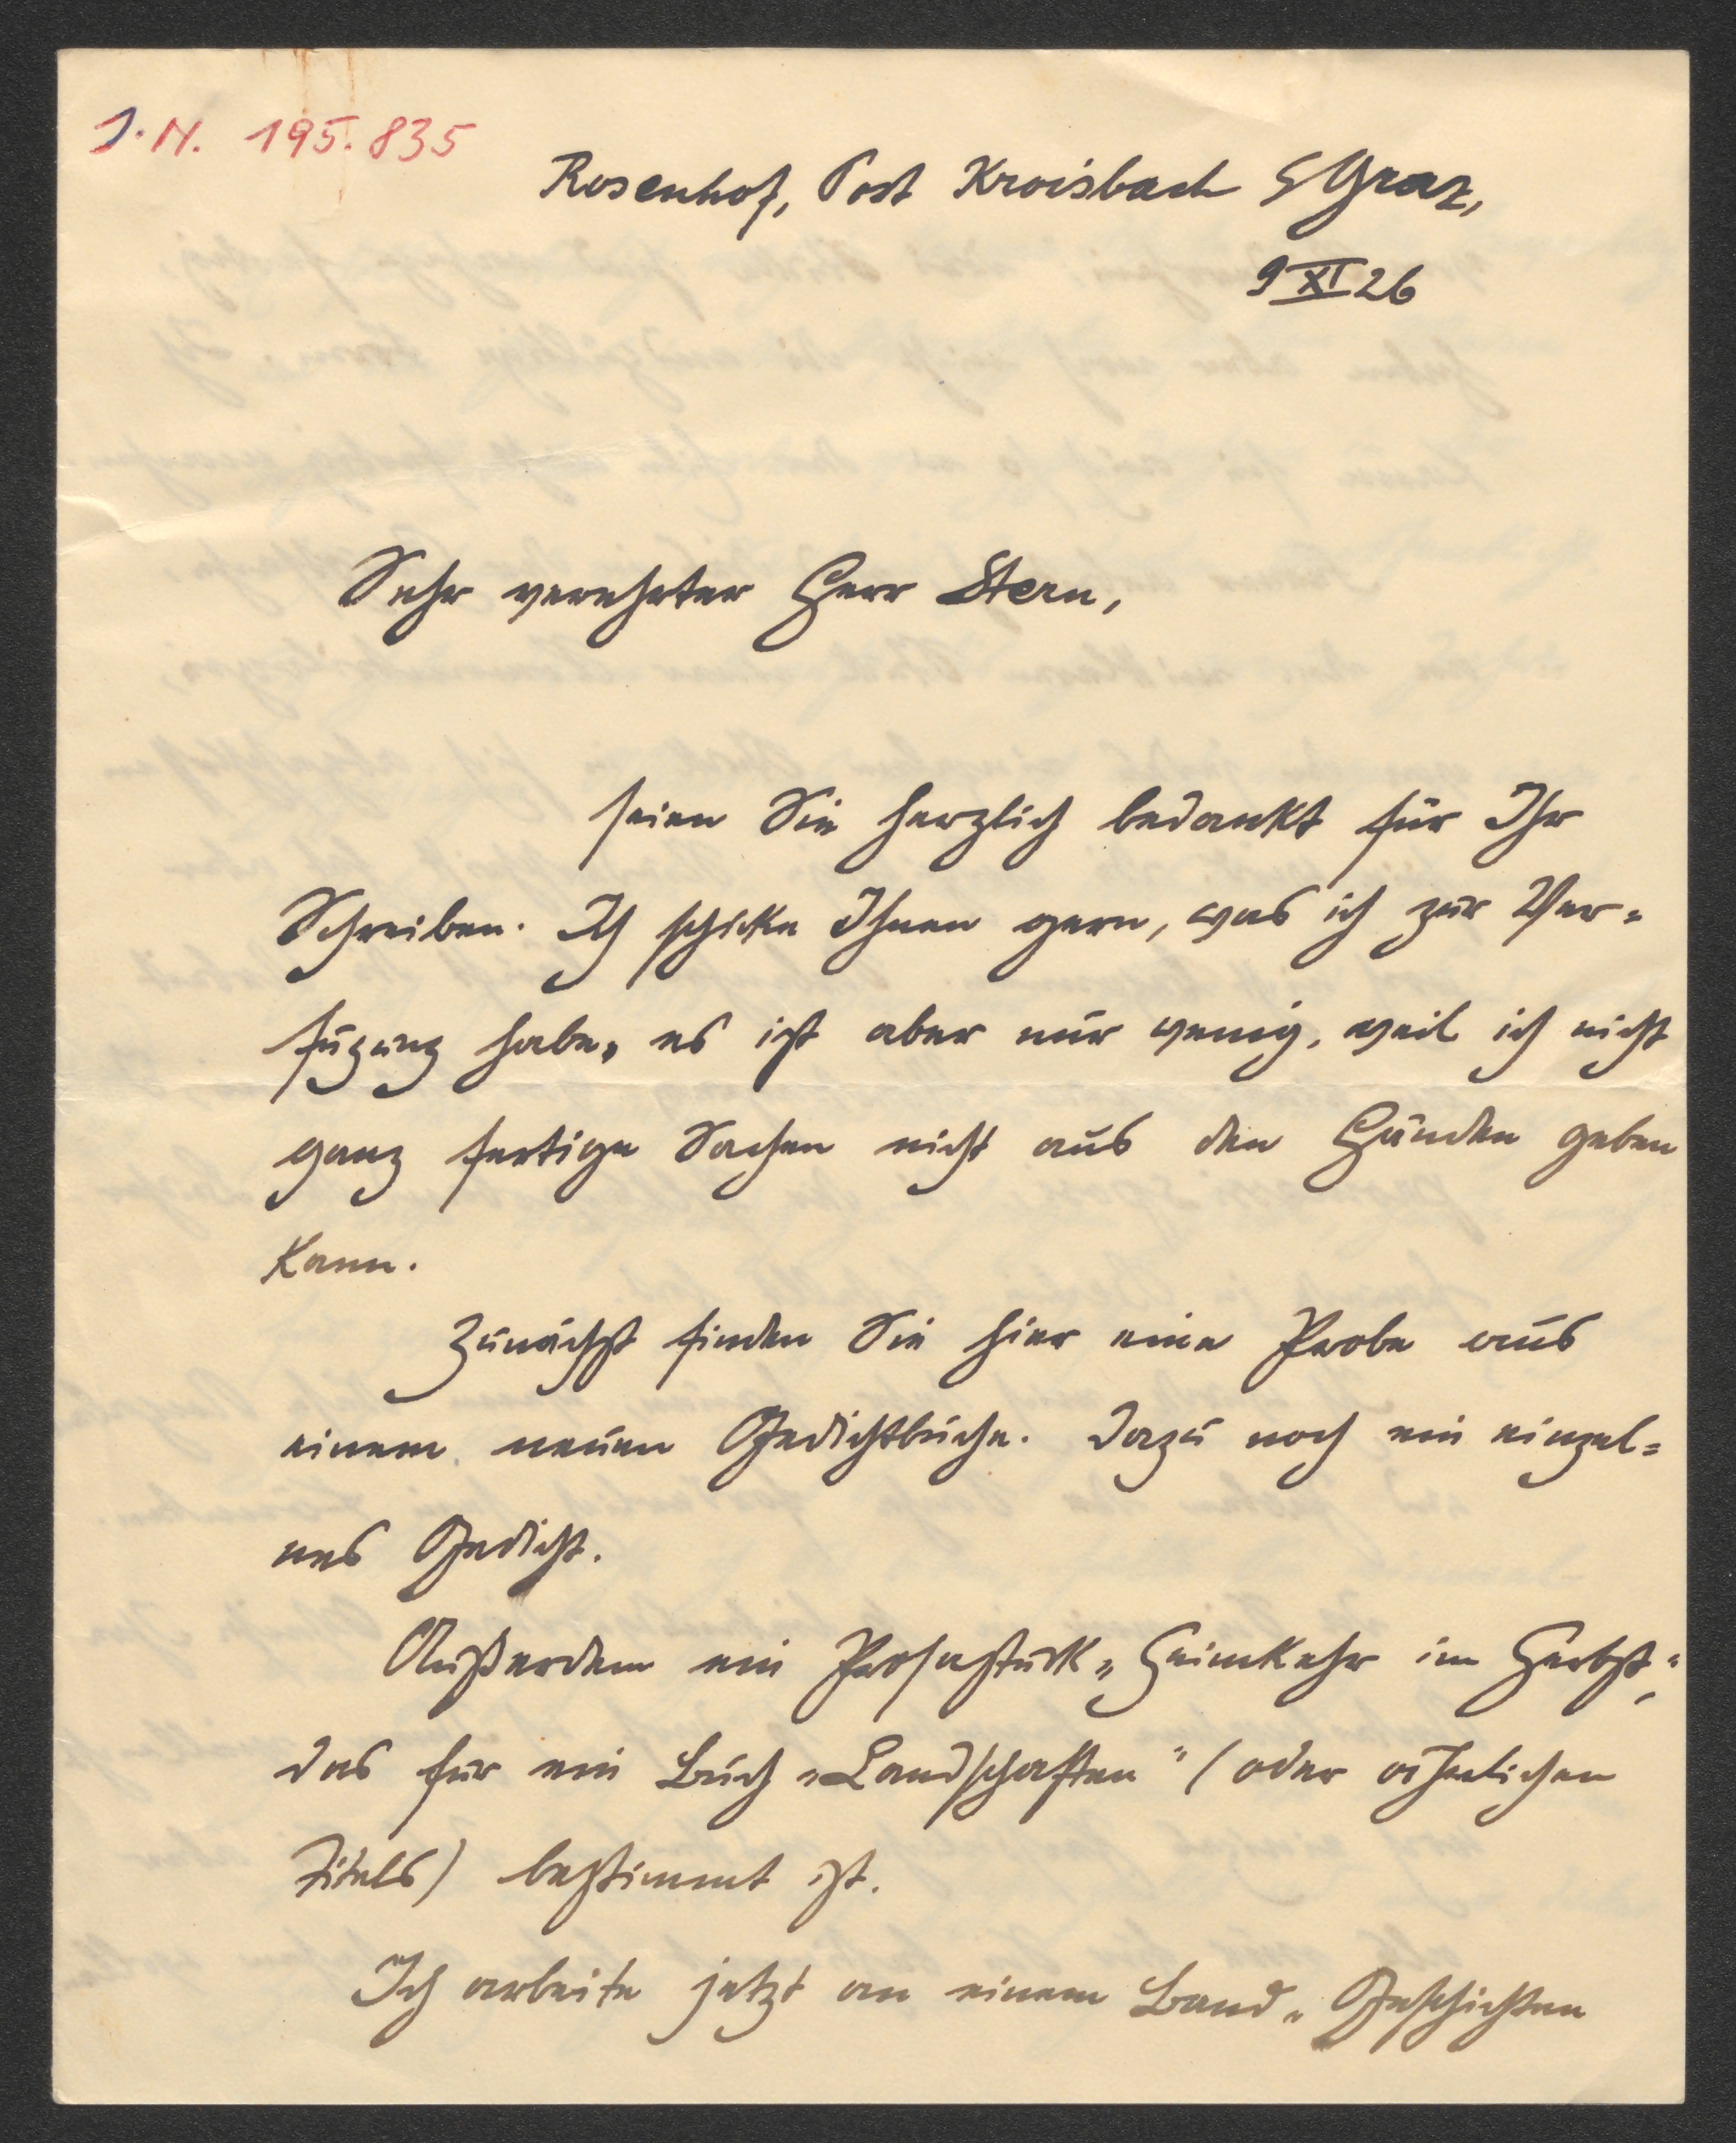 J.N. 195.835
Rosenhof, Post Kroisbach b/Graz,
9 XI 26
Sehr verehrter Herr Stern,
seien Sie herzlich bedankt für Ihr
Schreiben. Ich schicke Ihnen gern, was ich zur Ver=
fügung habe, es ist aber nur wenig, weil ich nicht
ganz fertige Sachen nicht aus den Händen geben
kann.
Zunächst finden Sie hier eine Probe aus
einem neuen Gedichtbuche. Dazu noch ein einzel=
nes Gedicht.
Außerdem ein Prosastück „Heimkehr im Herbst",
das für ein Buch „Landschaften" (oder ähnlichen
Titels) bestimmt ist.
Ich arbeite jetzt an einem Band „Geschichten